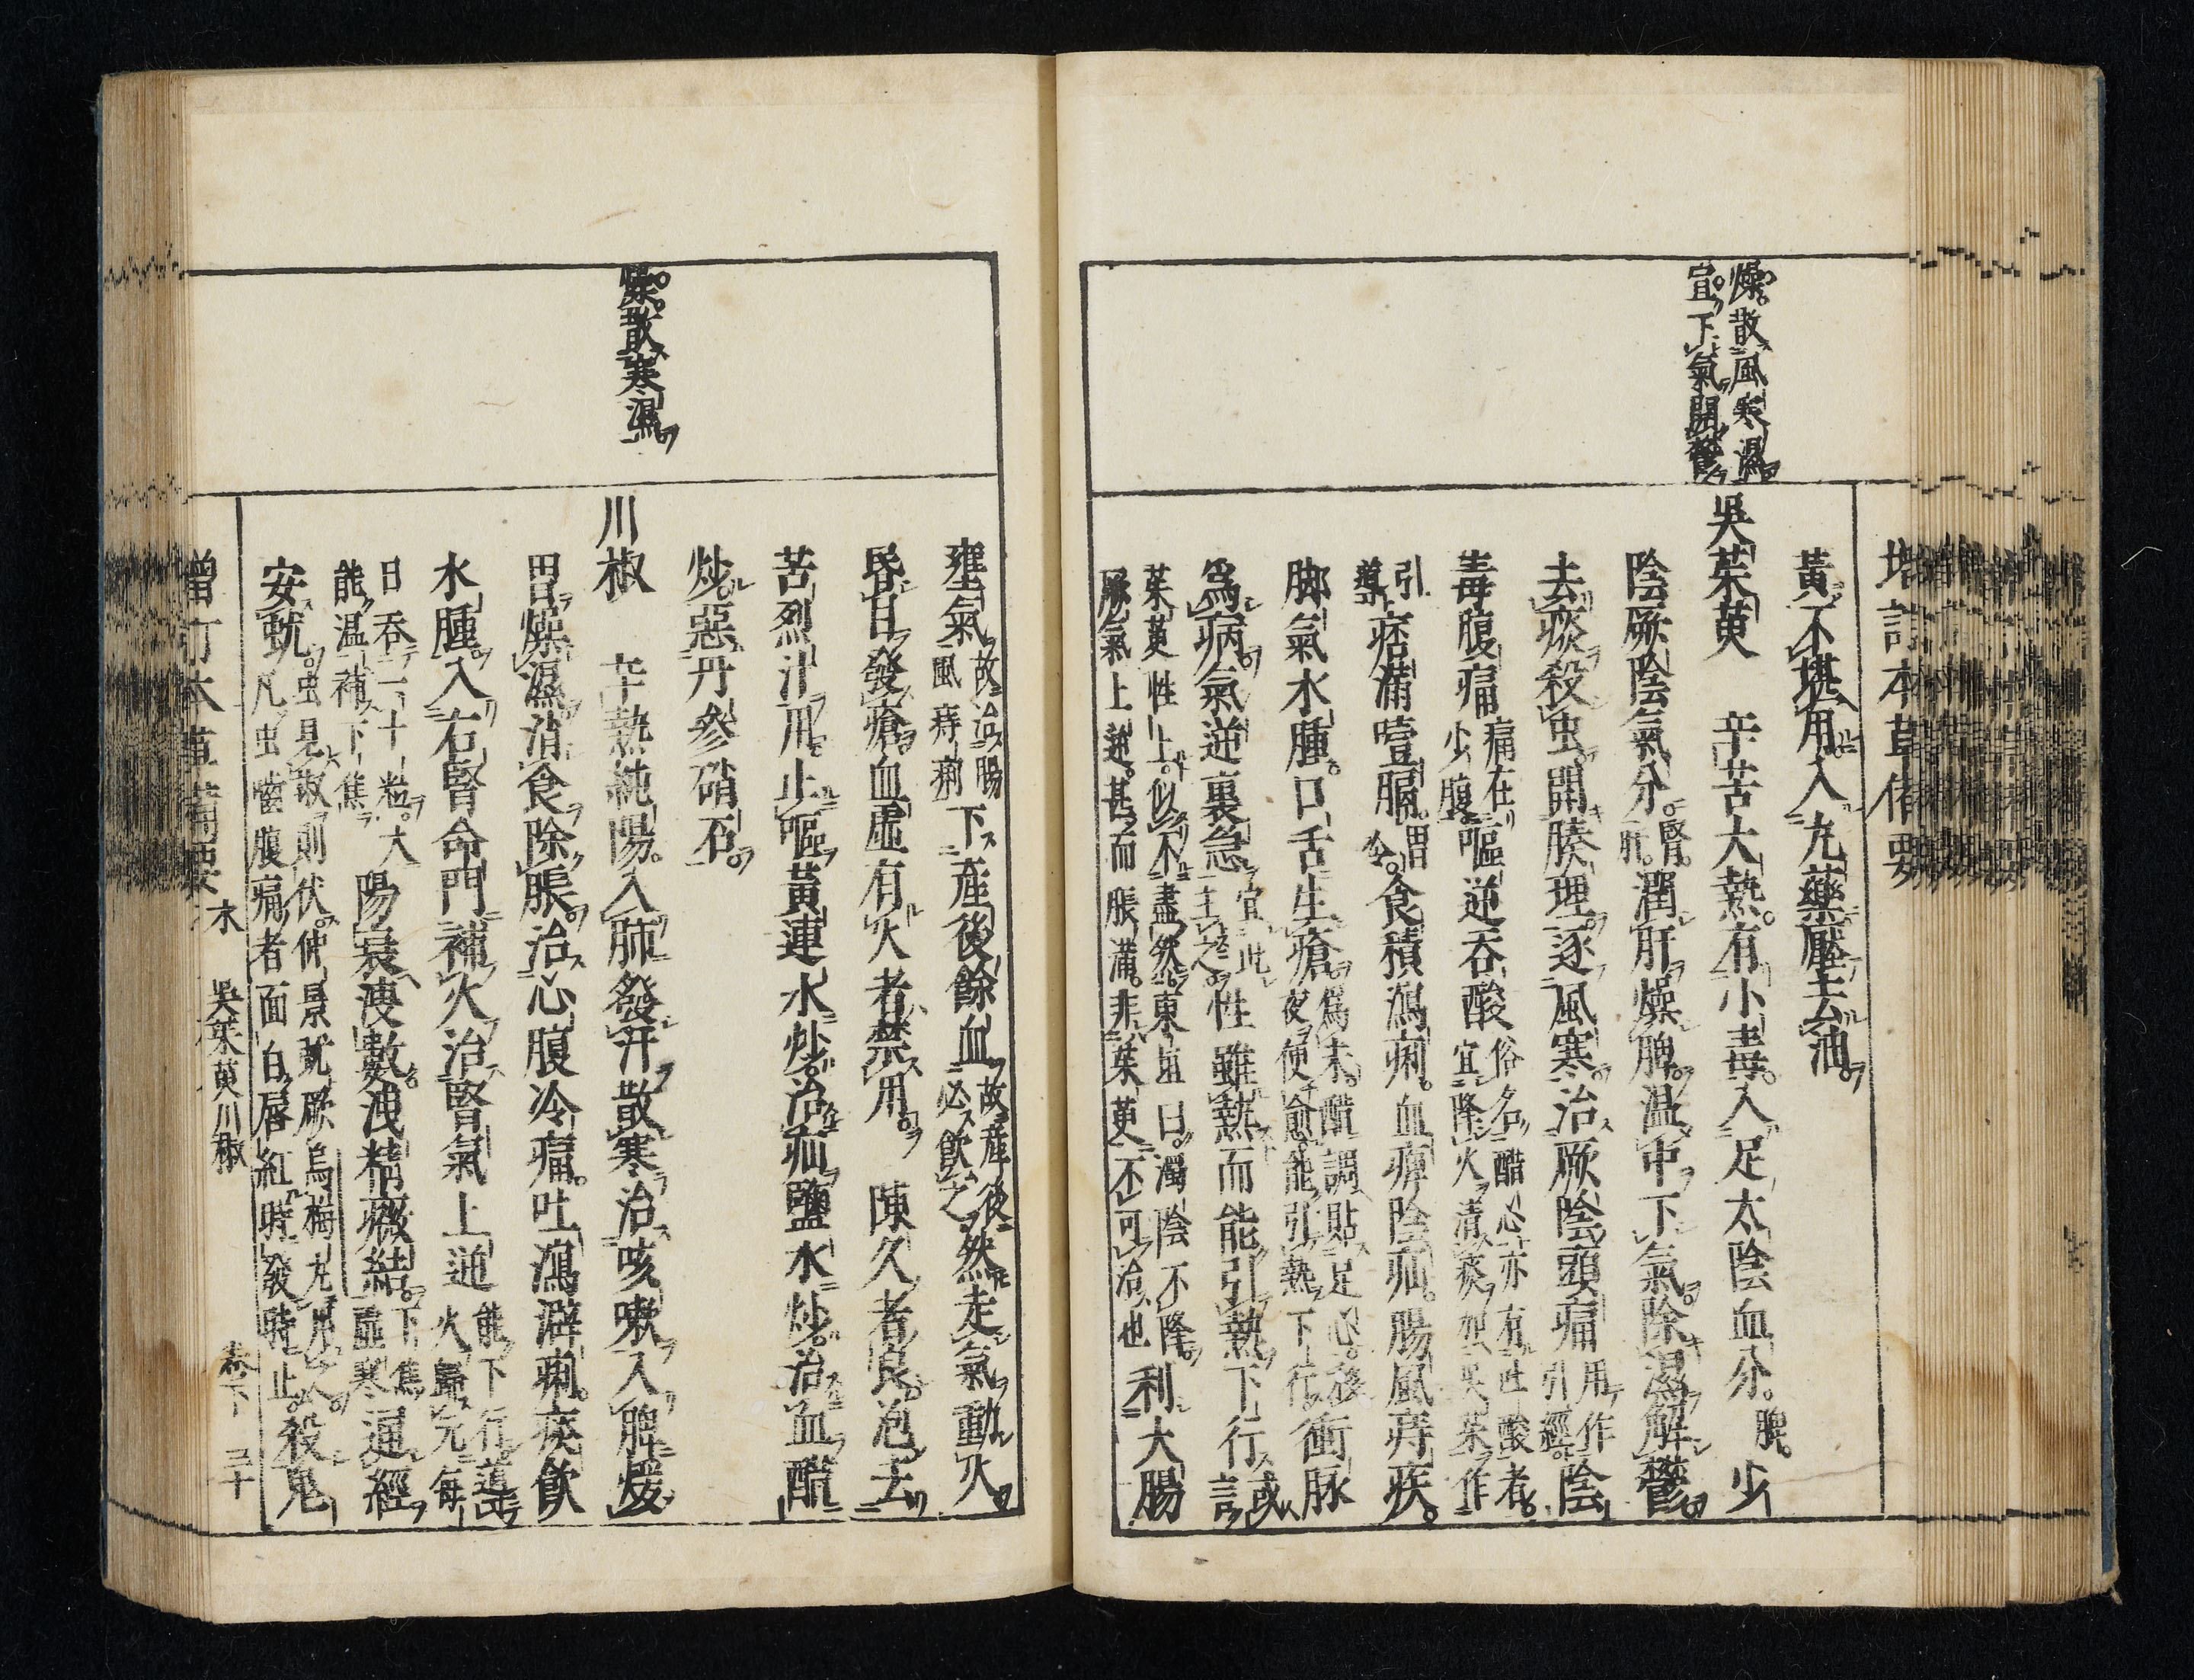 燥。散風寒濕。
宜。下氣開鬱
增訂本草備要
黃。不堪用。入丸藥。壓去油。
吳茱萸　辛苦大熱。有小毒。入足太陰血分。脾。少
陰厥陰氣分。腎。肝。潤肝燥脾。溫中下氣。除濕解鬱。
去痰殺虫。開腠理。逐風寒。治厥陰頭痛用作引經。陰
毒腹痛痛在少腹嘔逆吞酸俗名醋心亦有吐酸者。宜降火清痰。用吳茱作
引導痞滿噎膈。胃冷。食積瀉痢。血痺陰疝。腸風痔疾。
脚氣水腫。口舌生瘡。爲末。醋調貼足心。移夜便愈。能引熱下行。衝脉
爲病。氣逆裏急。宜此主之。性雖熱而能引熱下行。或言
茱萸性上。似不盡然。東垣曰。濁陰不降。厥氣上逆。甚而脹滿。非茱萸不可治也利大腸
壅氣故治腸風痔痢下產後餘血故產後必飲之然走氣動火。
昏目發瘡。血虛有火者禁用。　陳久者良。泡去
苦烈汁用。止嘔黃連水炒。治疝鹽水炒。治血醋
炒。惡丹參硝石。
燥。散寒濕。
川椒　辛熱純陽。入肺發汗散寒。治咳嗽。入脾煖
胃燥濕。消食除脹。治心腹冷痛。吐瀉澼痢。痰飲
水腫。入右腎命門。補火。治腎氣上逆能下行導火歸元每
日吞二十粒。大能溫補下焦陽衰溲數。洩精癥結。下焦虛寒通經
安蚘。虫見椒則伏。仲景蚘厥烏梅丸用之。凡虫嚙腹痛者面白唇紅時發時止。殺鬼
增訂本草備要　木　吳茱萸川椒　卷下　三十